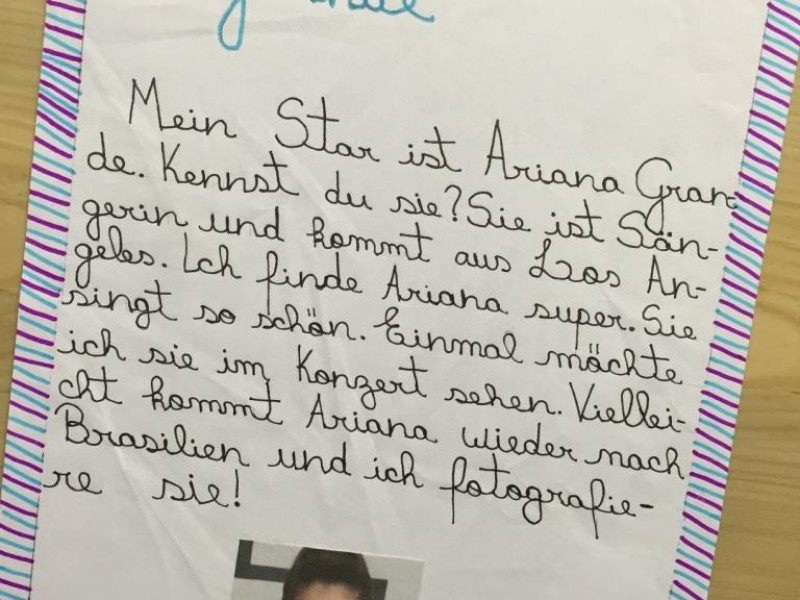 Mein Star ist Ariana Gran-
de. Kennst du sie? Sie ist Sän-
gerin und kommt aus Los An-
geles. Ich finde Ariana super. Sie
singt so schön. Einmal möchte
ich sie im Konzert sehen. Viellei-
cht kommt Ariana wieder nach
Brasilien und ich fotografie-
re sie!